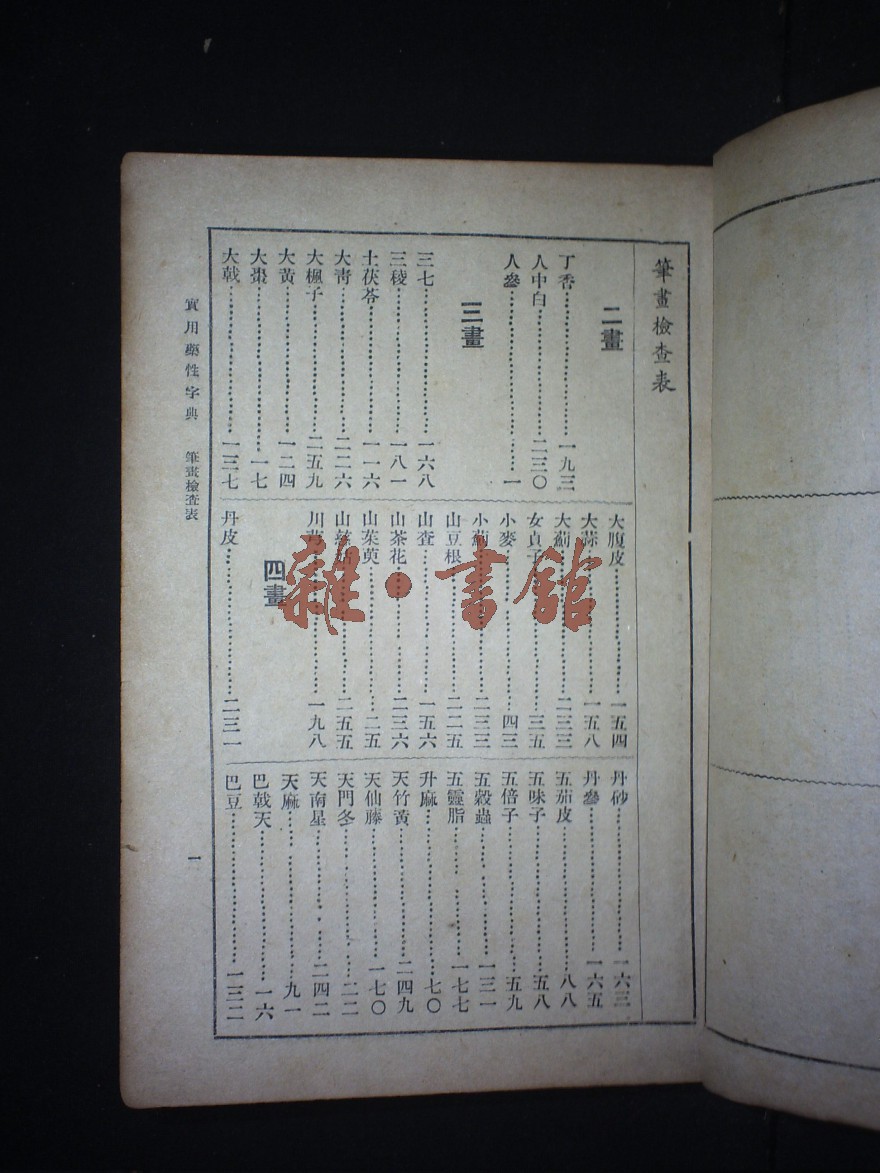 筆畫檢查表
二畫
丁香……一九三
人中白……二三〇
人參……一
三畫
三七……一六八
三稜……一八一
土茯苓……一一六
大青……二二六
大楓子……二五九
大黃……一二四
大棗……一七
大戟……一三七
大腹皮……一五四
大蒜……一五八
大薊……二三三
女貞子……三五
小麥……四三
小薊……二三三
山豆根……二二五
山查……一五六
山茶花……二三六
山茱萸……二五
山……二五五
川芎……一九八
四畫
丹皮……二三一
丹砂……一六三
丹參……一六五
五茄皮……八八
五味子……五八
五倍子……五九
五穀蟲……一三一
五靈脂……一七七
升麻……七〇
天竹黃……二四九
天仙藤……一七〇
天門冬……二二
天南星……二四二
天麻……九一
巴戟天……一六
巴豆……一三二
實用藥性字典 筆畫檢查表
一
雜·書館